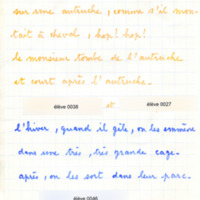 sur une autruche, comme s'il mon-
tait à cheval, hop! hop!
le monsieur tombe de l'autruche
et court après l'autruche.
élève 0038 et élève 0027
l'hiver, quand il gèle, on les emmène
dans une très, très grande cage.
après, on les sort dans leur parc.
élève 0046